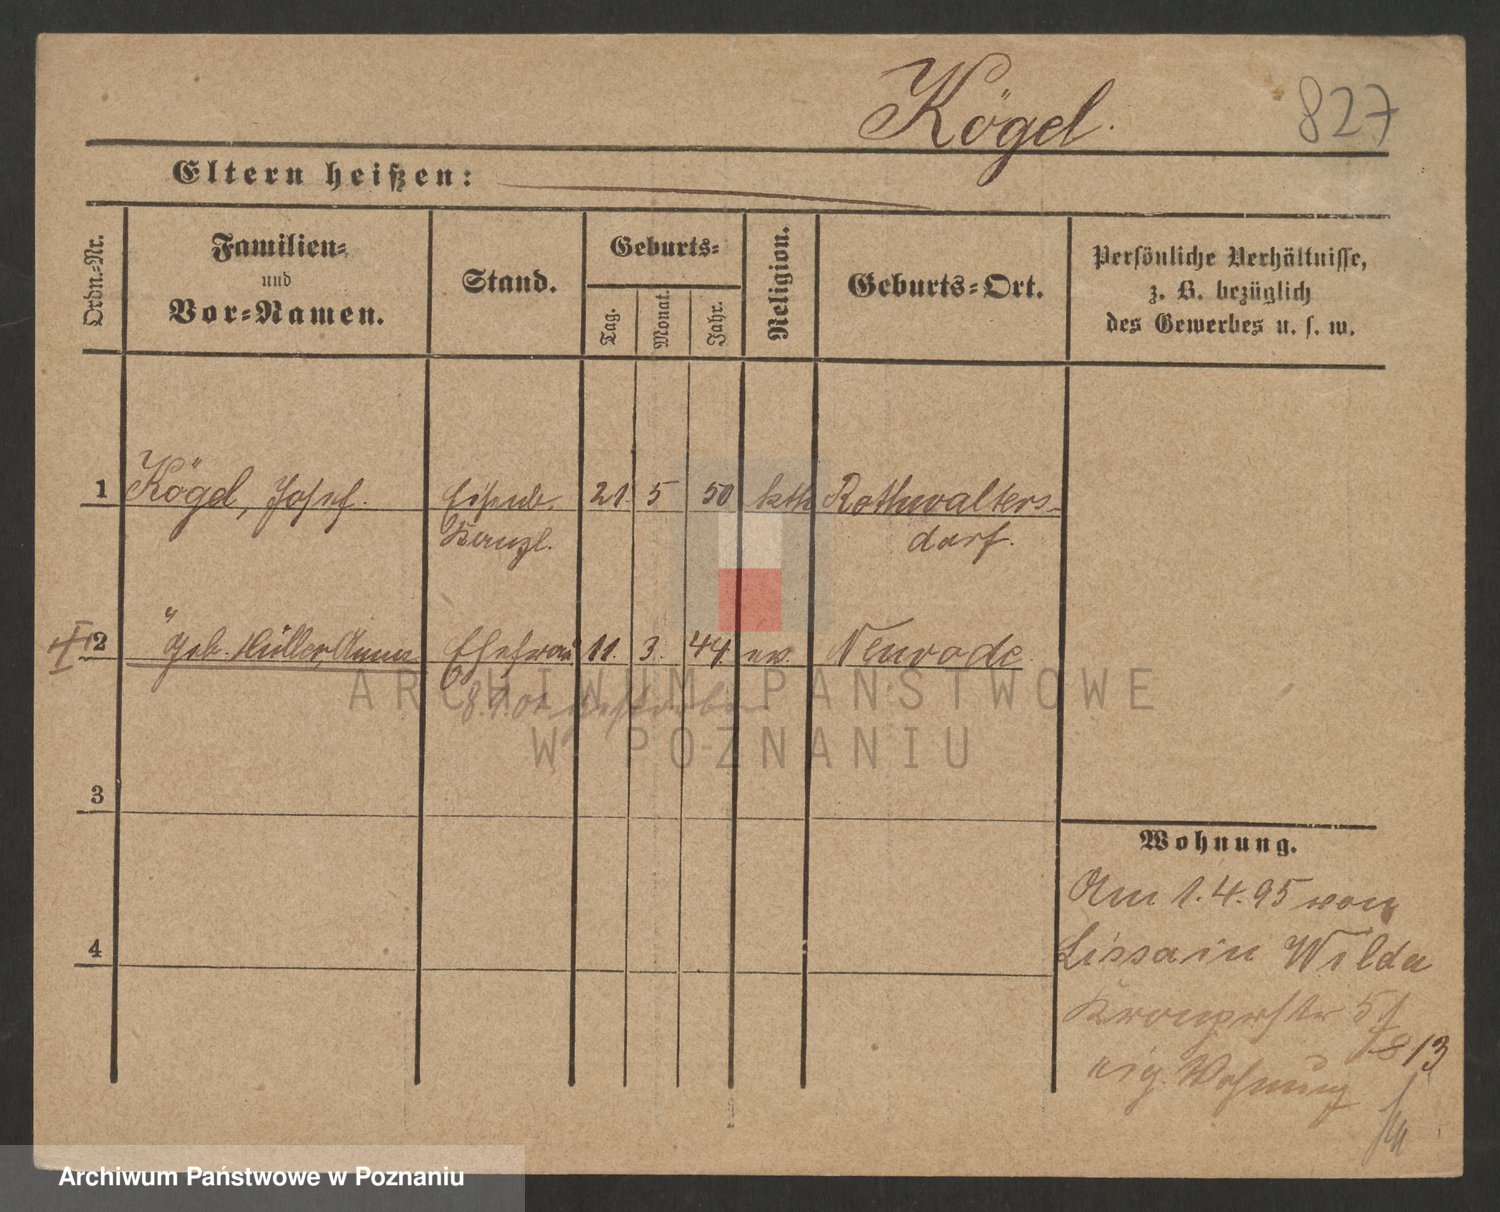 Kögel.
827
Eltern heißen:
Ordn.-Nr.
Familien-
und
Vor-Namen.
Stand.
Geburts-
Tag.
Monat.
Jahr.
Religion.
Geburts-Ort.
Persönliche Verhältnisse,
z. B. bezüglich
des Gewerbes u. s. w.
1 Kögel, Josef. Eisenb. 21 5 50 kth Rothwalters-
Kanzl. dorf.
2 " geb. Müller, Anna Ehefrau 11. 3. 44. ev. Neurode
8.7.01 gestorben
3
4
Wohnung.
Am 1.4.95 von
Lissa in Wilda
Kronprstr 5
8/3
eig. Wohnung
ARCHIWUM PAŃSTWOWE
W POZNANIU
Archiwum Państwowe w Poznaniu